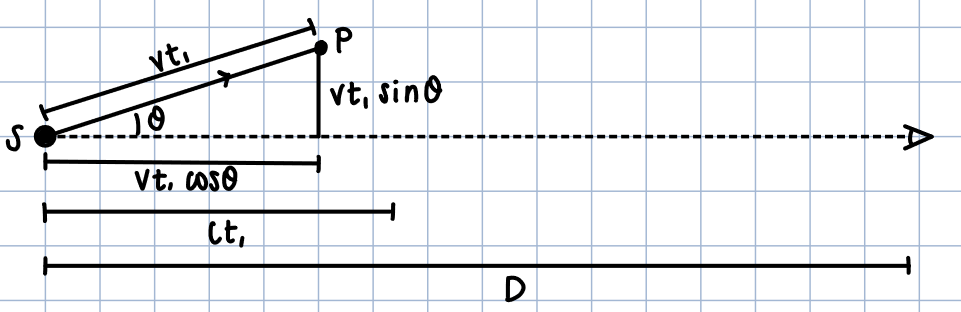 vt₁
P
vt₁ sinθ
θ
S
vt₁ cosθ
ct₁
D